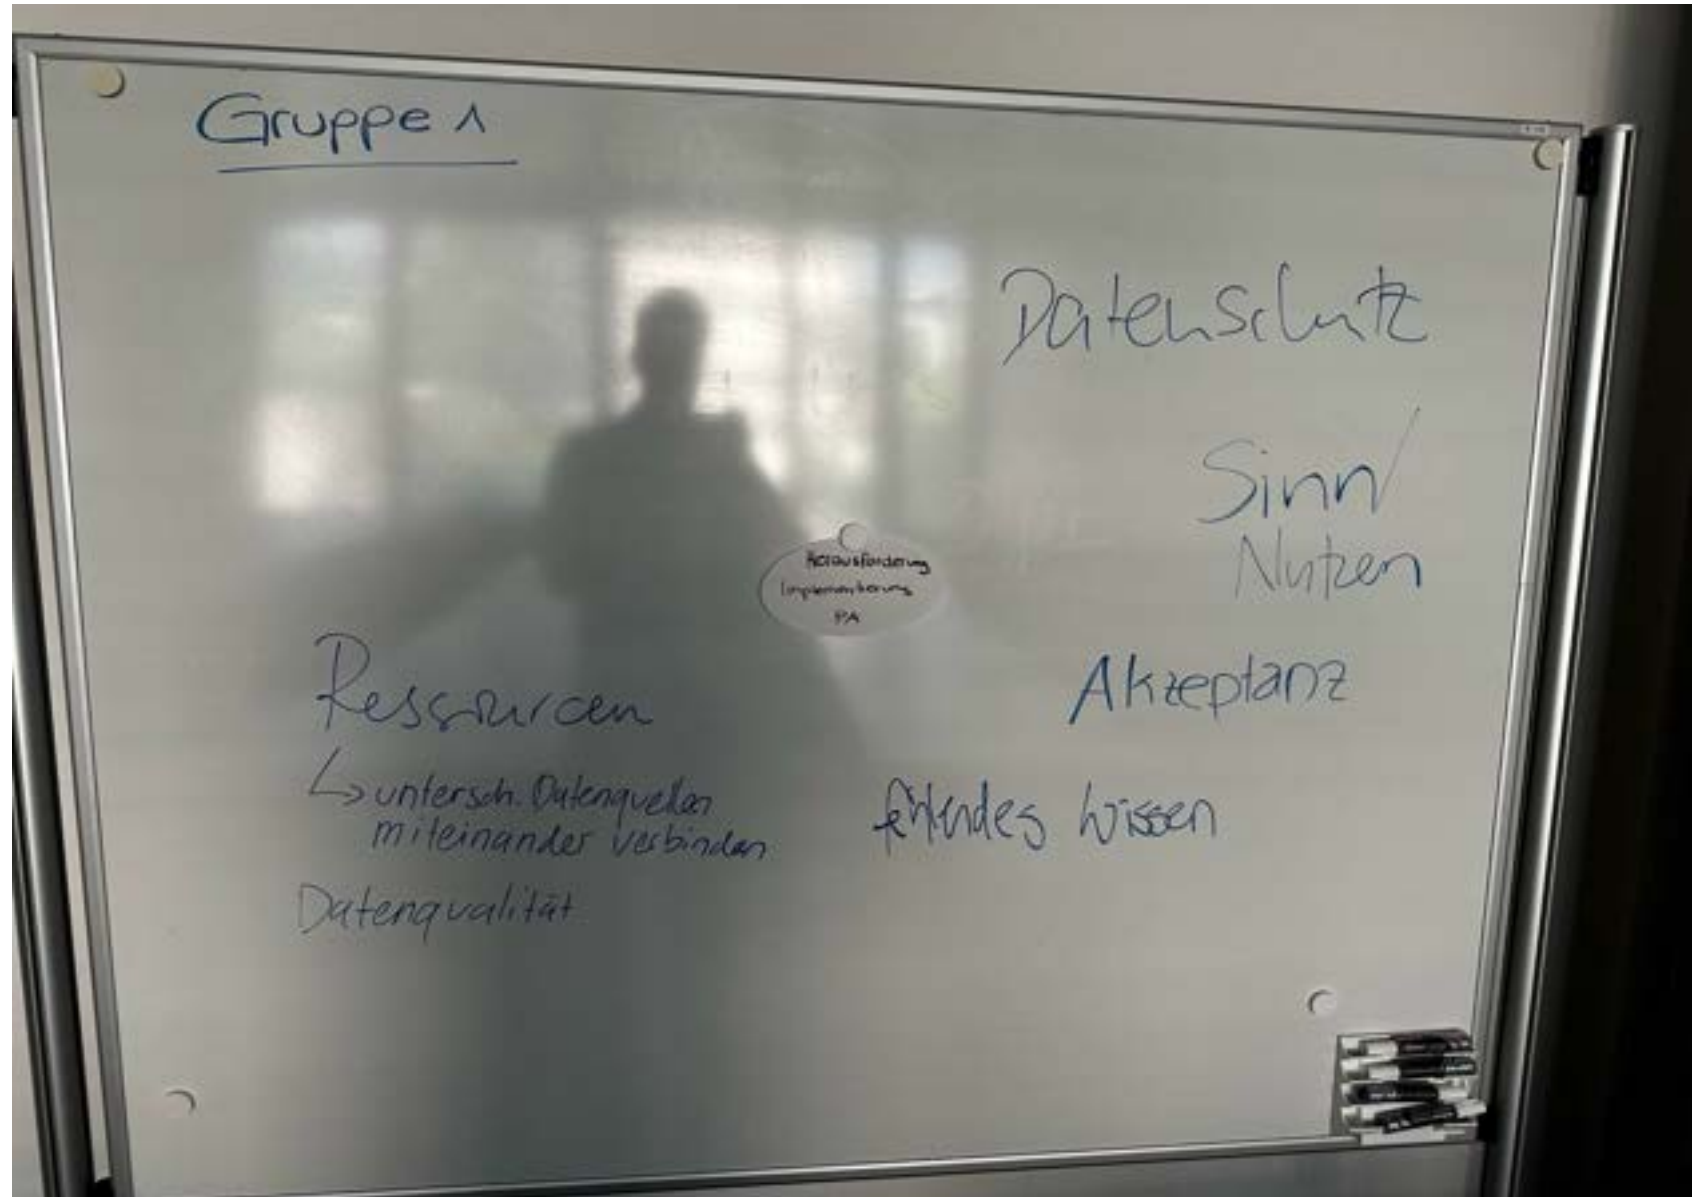 Gruppe 1
Datenschutz
Sinn/
Nutzen
Herausforderung
Implementierung
PA
Ressourcen
Akzeptanz
↳ untersch. Datenquellen
miteinander verbinden
fehlendes Wissen
Datenqualität